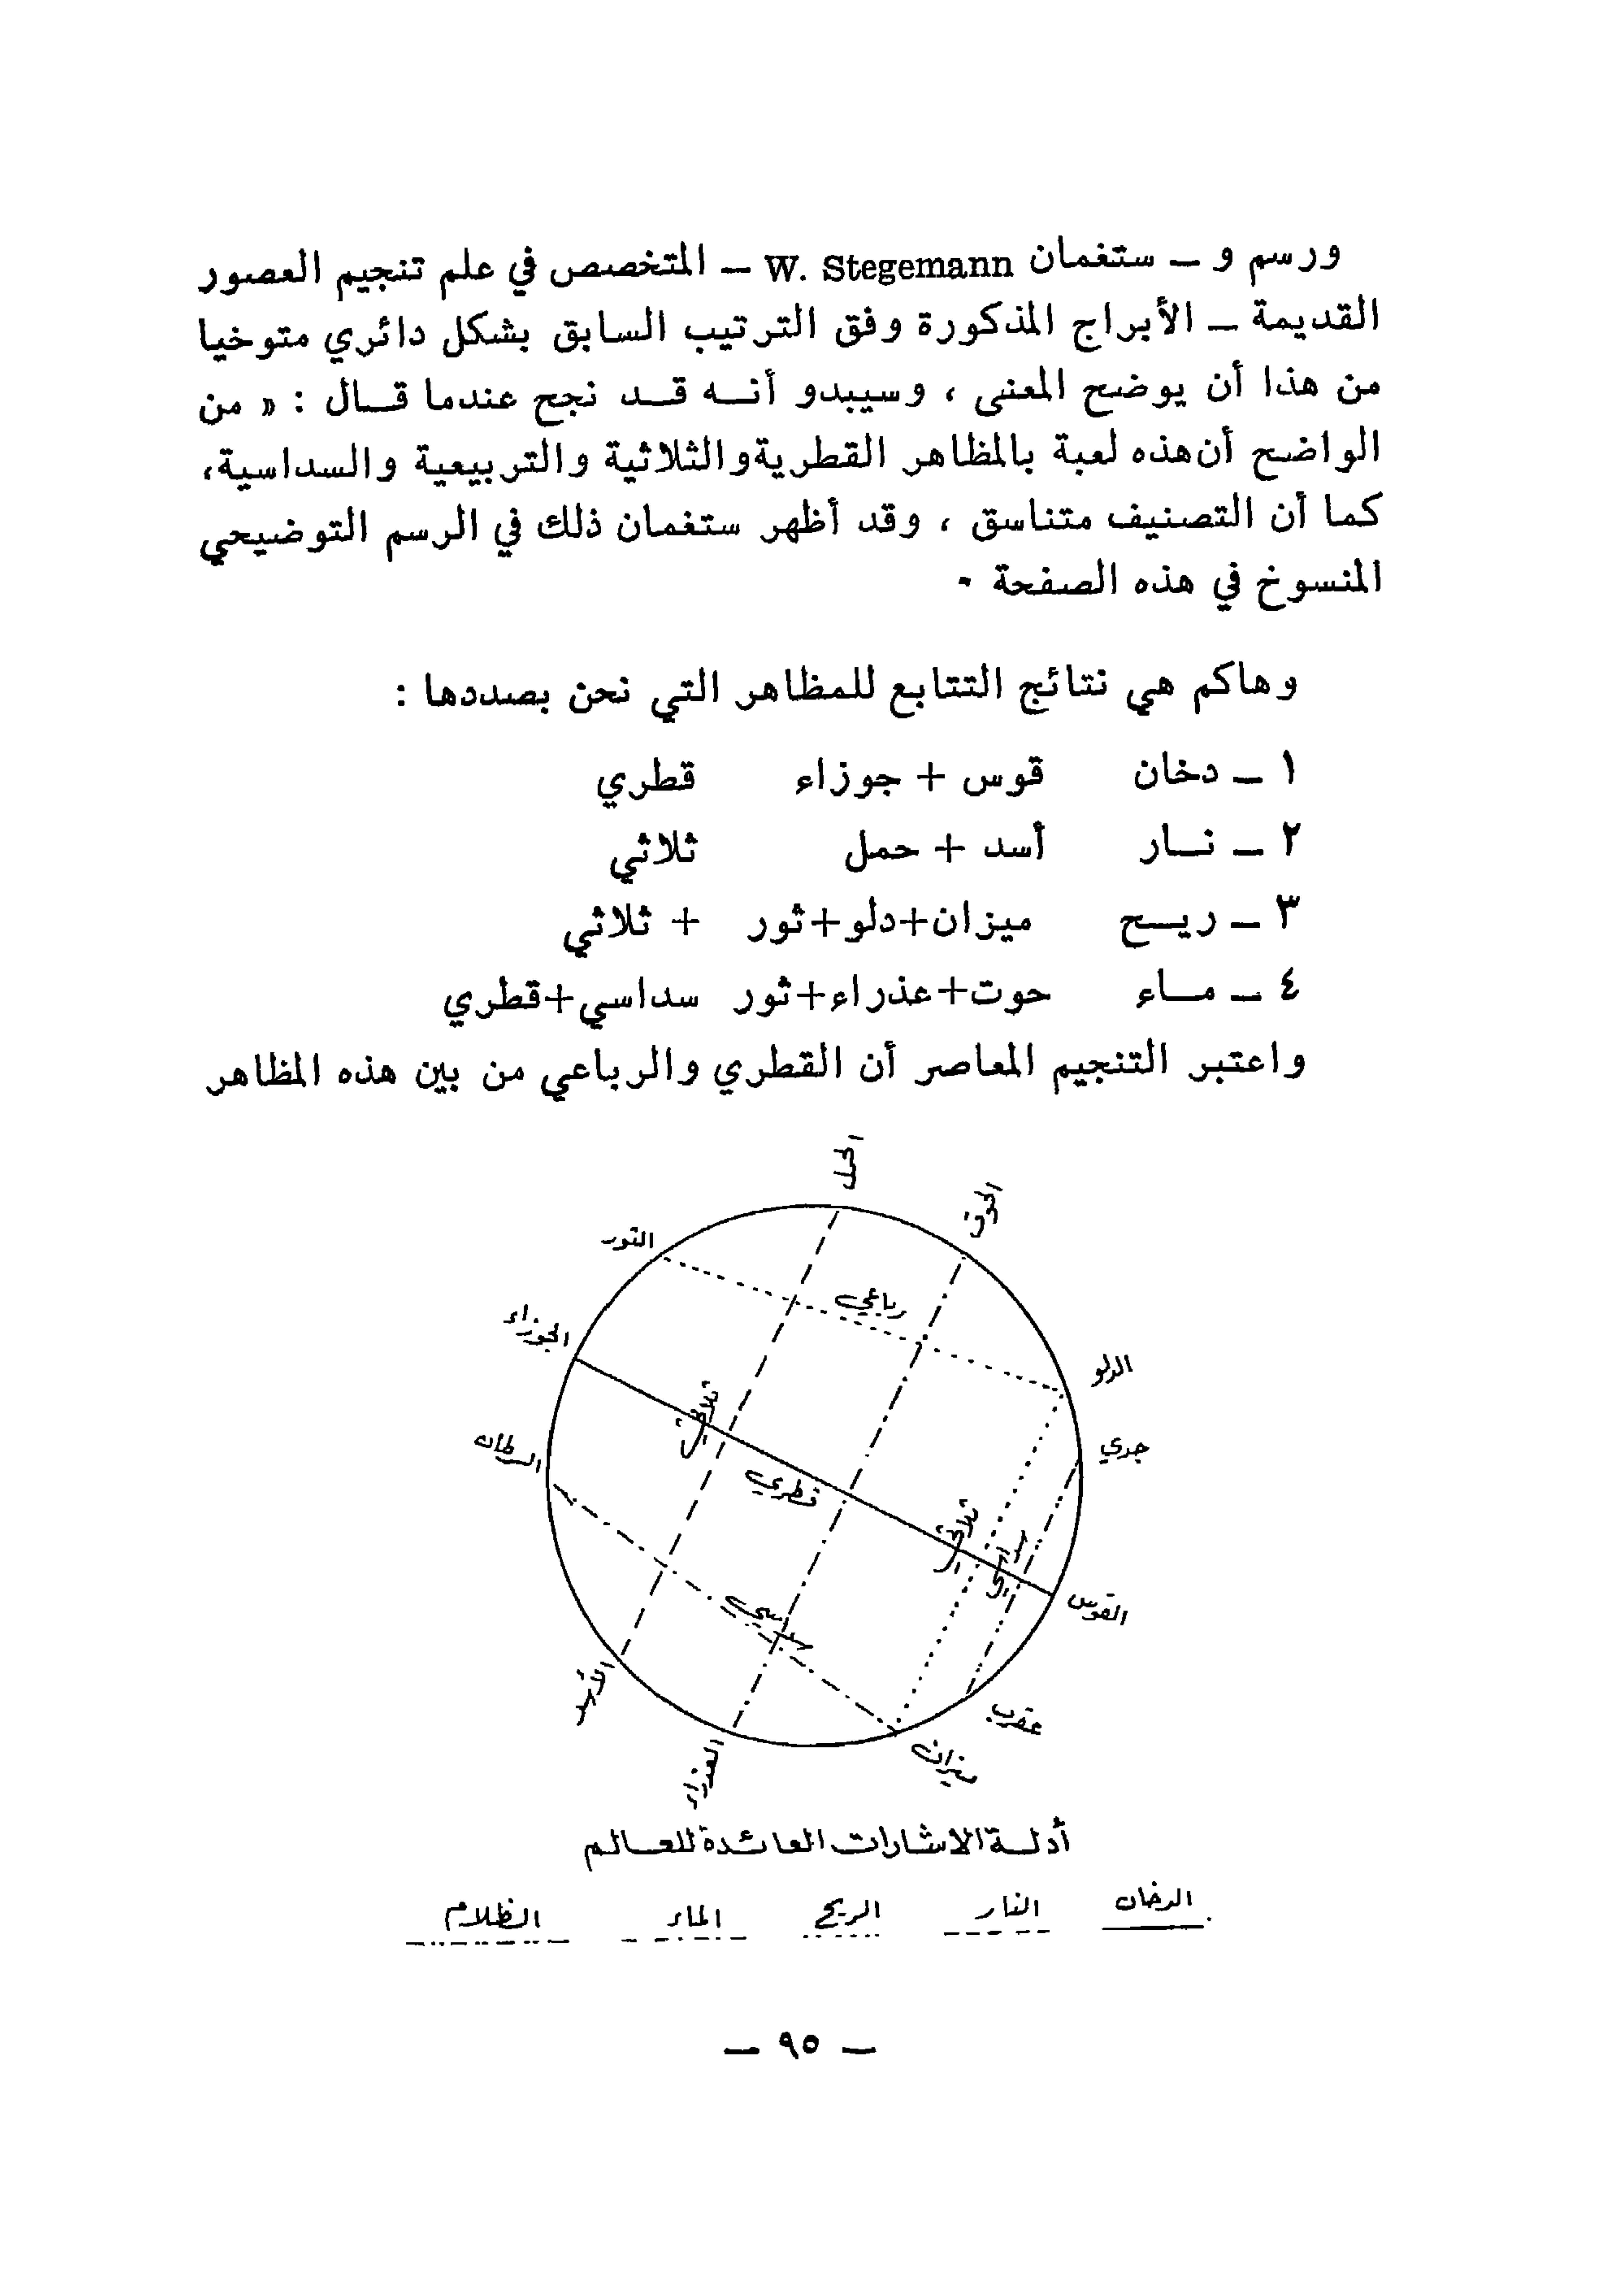 ورسم و ــ ستغمان W. Stegemann ــ المتخصص في علم تنجيم العصور
القديمة ــ الأبراج المذكورة وفق الترتيب السابق بشكل دائري متوخيا
من هذا أن يوضح المعنى ، وسيبدو أنــه قــد نجح عندما قــال : « من
الواضح أن هذه لعبة بالمظاهر القطرية والثلاثية والتربيعية والسداسية،
كما أن التصنيف متناسق ، وقد أظهر ستغمان ذلك في الرسم التوضيحي
المنسوخ في هذه الصفحة .
وهاكم هي نتائج التتابع للمظاهر التي نحن بصددها :
١ ــ دخان قوس + جوزاء قطري
٢ ــ نــار أسد + حمل ثلاثي
٣ ــ ريــح ميزان+دلو+ثور + ثلاثي
٤ ــ مــاء حوت+عذراء+ثور سداسي+قطري
واعتبر التنجيم المعاصر أن القطري والرباعي من بين هذه المظاهر
الحمل
الحوت
الثور
رباعي
الجوزاء
الدلو
ثلاثي
جدي
السرطان
قطري
ثلاثي
سداسي
القوس
سداسي
الأسد
عقرب
العذراء
ميزان
أدلــة الاشارات العائدة للعــالم
الدخان النار الريح الماء الظلام
ــ ٩٥ ــ